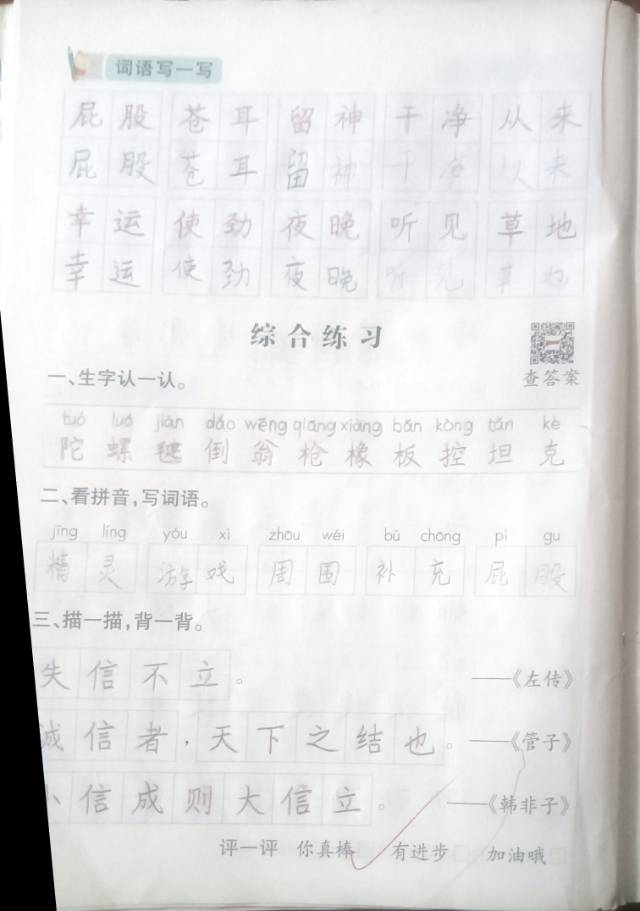 词语写一写
屁股 苍耳 留神 干净 从来
屁股 苍耳 留神 干净 从来
幸运 使劲 夜晚 听见 草地
幸运 使劲 夜晚 听见 草地
综合练习
一、生字认一认。
查答案
tuó luó jiàn dǎo wēng qiāng xiàng bǎn kòng tǎn kè
陀 螺 毽 倒 翁 枪 橡 板 控 坦 克
二、看拼音,写词语。
jīng líng yóu xì zhōu wéi bǔ chōng pì gu
精灵 游戏 周围 补充 屁股
三、描一描,背一背。
失信不立。 ——《左传》
诚信者,天下之结也。 ——《管子》
小信成则大信立。 ——《韩非子》
评一评 你真棒 有进步 加油哦